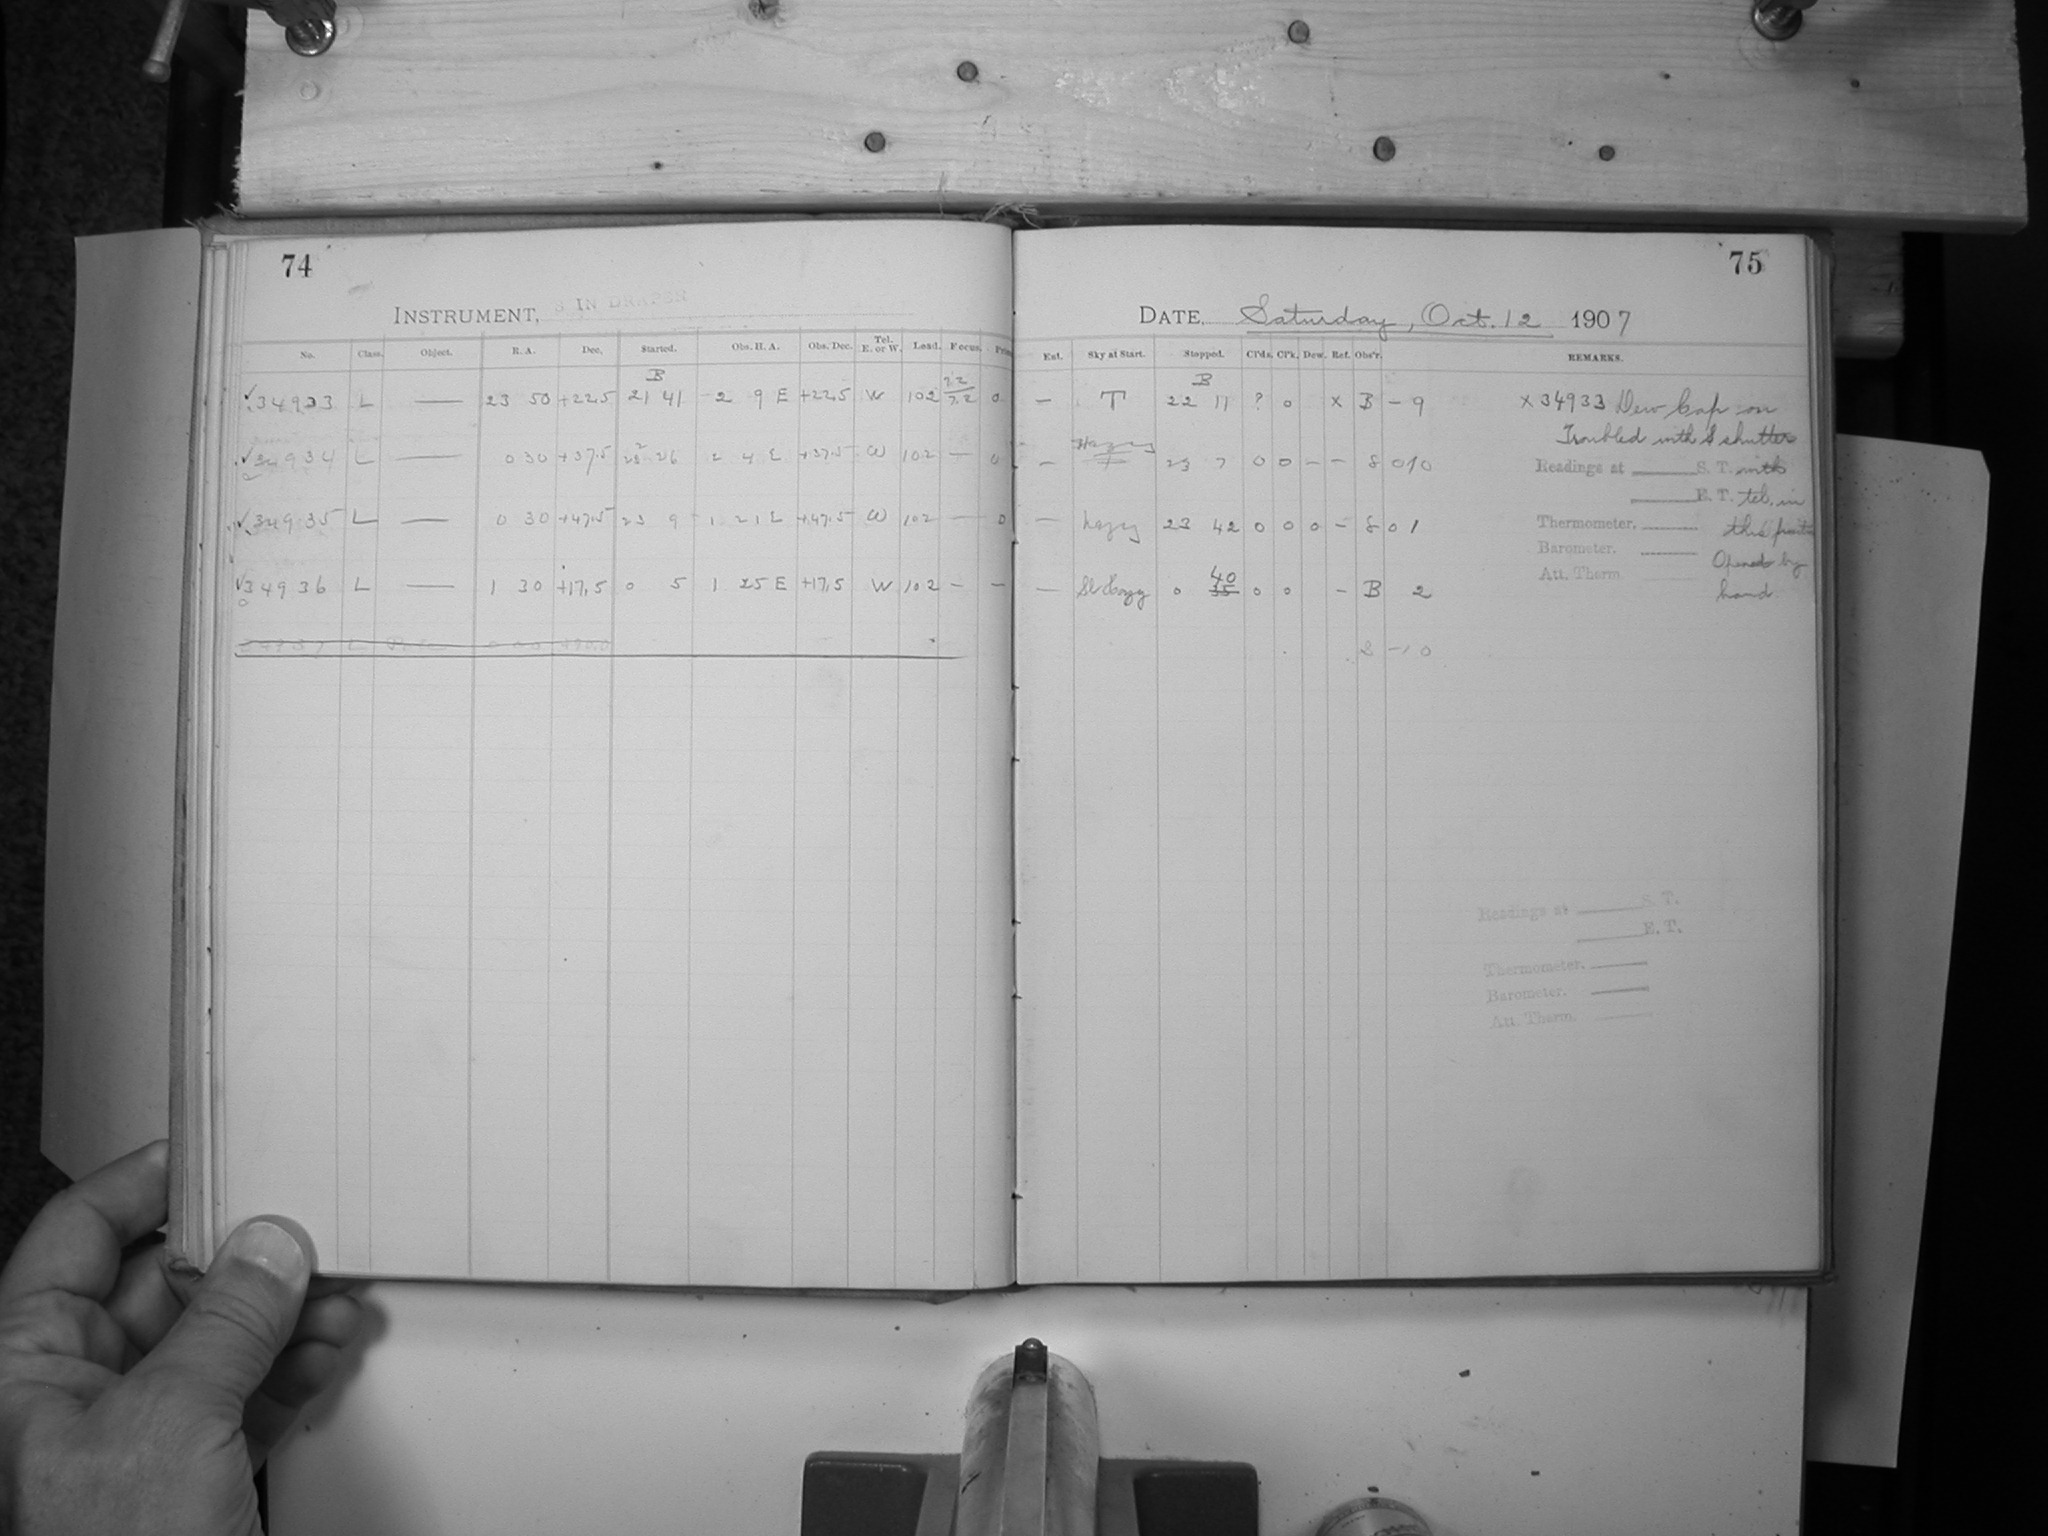 74
INSTRUMENT, 8 IN DRAPER
No. Class. Object. R. A. Dec. Started. Obs. H. A. Obs. Dec. Tel. E. or W. Lead. Focus.
B
✓34933 L — 23 50 +22.5 21 41 -2 9 E +22.5 W 102 7.2 0
✓34934 L — 0 30 +37.5 26 2 4 E +37.5 W 102 — 0
✓34935 L — 0 30 +47.5 23 9 -1 21 E +47.5 W 102 — 0
✓34936 L — 1 30 +17.5 0 5 1 25 E +17.5 W 102 — —
75
DATE, Saturday, Oct. 12 1907
Est. Sky at Start. Stopped. Cl'ds. Cl'k. Dew. Ref. Obs'r. REMARKS.
B
— T 22 11 ? 0 X B - 9 X 34933 Dew Cap on
Troubled with S shutter
— Hazy 23 7 0 0 — — 8 0 10
Readings at S. T. with
E. T. tel. in
— hazy 23 42 0 0 0 — 8 0 1
Thermometer, this
Barometer. Opened by
Att. Therm. hand
— Sl Hazy 0 40 35 0 0 - B 2
8 -10
Readings at S. T.
E. T.
Thermometer.
Barometer.
Att. Therm.